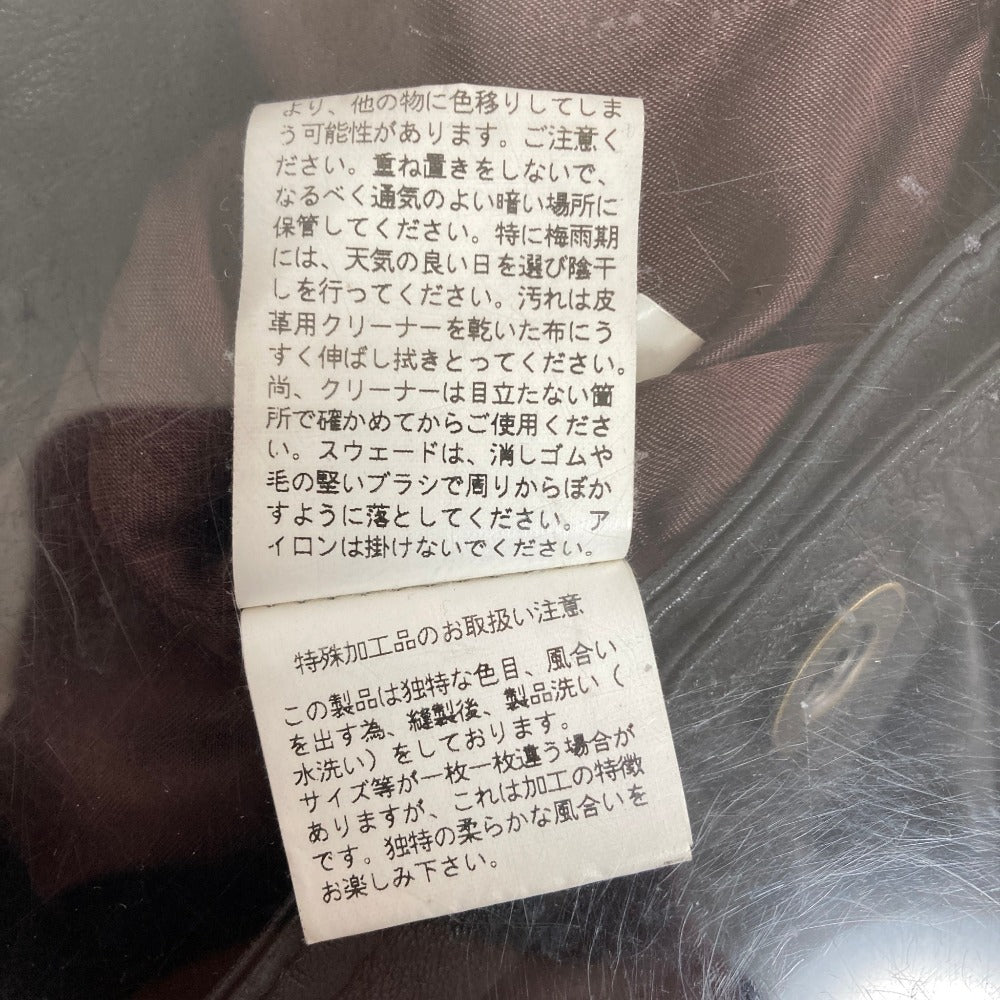 より、他の物に色移りしてしま
う可能性があります。ご注意く
ださい。重ね置きをしないで、
なるべく通気のよい暗い場所に
保管してください。特に梅雨期
には、天気の良い日を選び陰干
しを行ってください。汚れは皮
革用クリーナーを乾いた布にう
すく伸ばし拭きとってください。
尚、クリーナーは目立たない箇
所で確かめてからご使用くださ
い。スウェードは、消しゴムや
毛の堅いブラシで周りからぼか
すように落としてください。ア
イロンは掛けないでください。
特殊加工品のお取扱い注意
この製品は独特な色目、風合い
を出す為、縫製後、製品洗い（
水洗い）をしております。
サイズ等が一枚一枚違う場合が
ありますが、これは加工の特徴
です。独特の柔らかな風合いを
お楽しみ下さい。